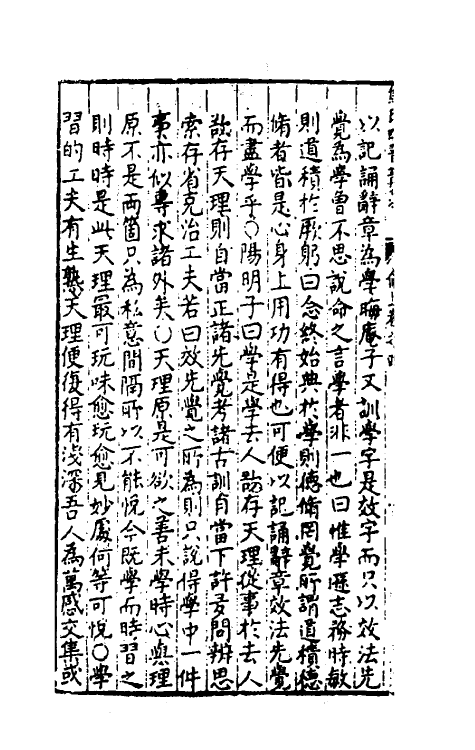 以記誦辭章為學晦庵子又訓學字是效字而只以效法先
覺為學曾不思說命之言學者非一也曰惟學遜志務時敏
則道積於厥躬曰念終始典於學則德脩罔覺所謂道積德
脩者皆是心身上用功有得也可便以記誦辭章效法先覺
而盡學乎○陽明子曰學是學去人欲存天理從事於去人
欲存天理則自當正諸先覺考諸古訓自當下許多問辨思
索存省克治工夫若曰效先覺之所為則只說得學中一件
事亦似專求諸外矣○天理原是可欲之善未學時心與理
原不是兩箇只為私意間隔所以不能悅今既學而時習之
則時時是此天理最可玩味愈玩愈見妙處何等可悅○學
習的工夫有生熟天理便復得有淺深吾人為萬感交集或